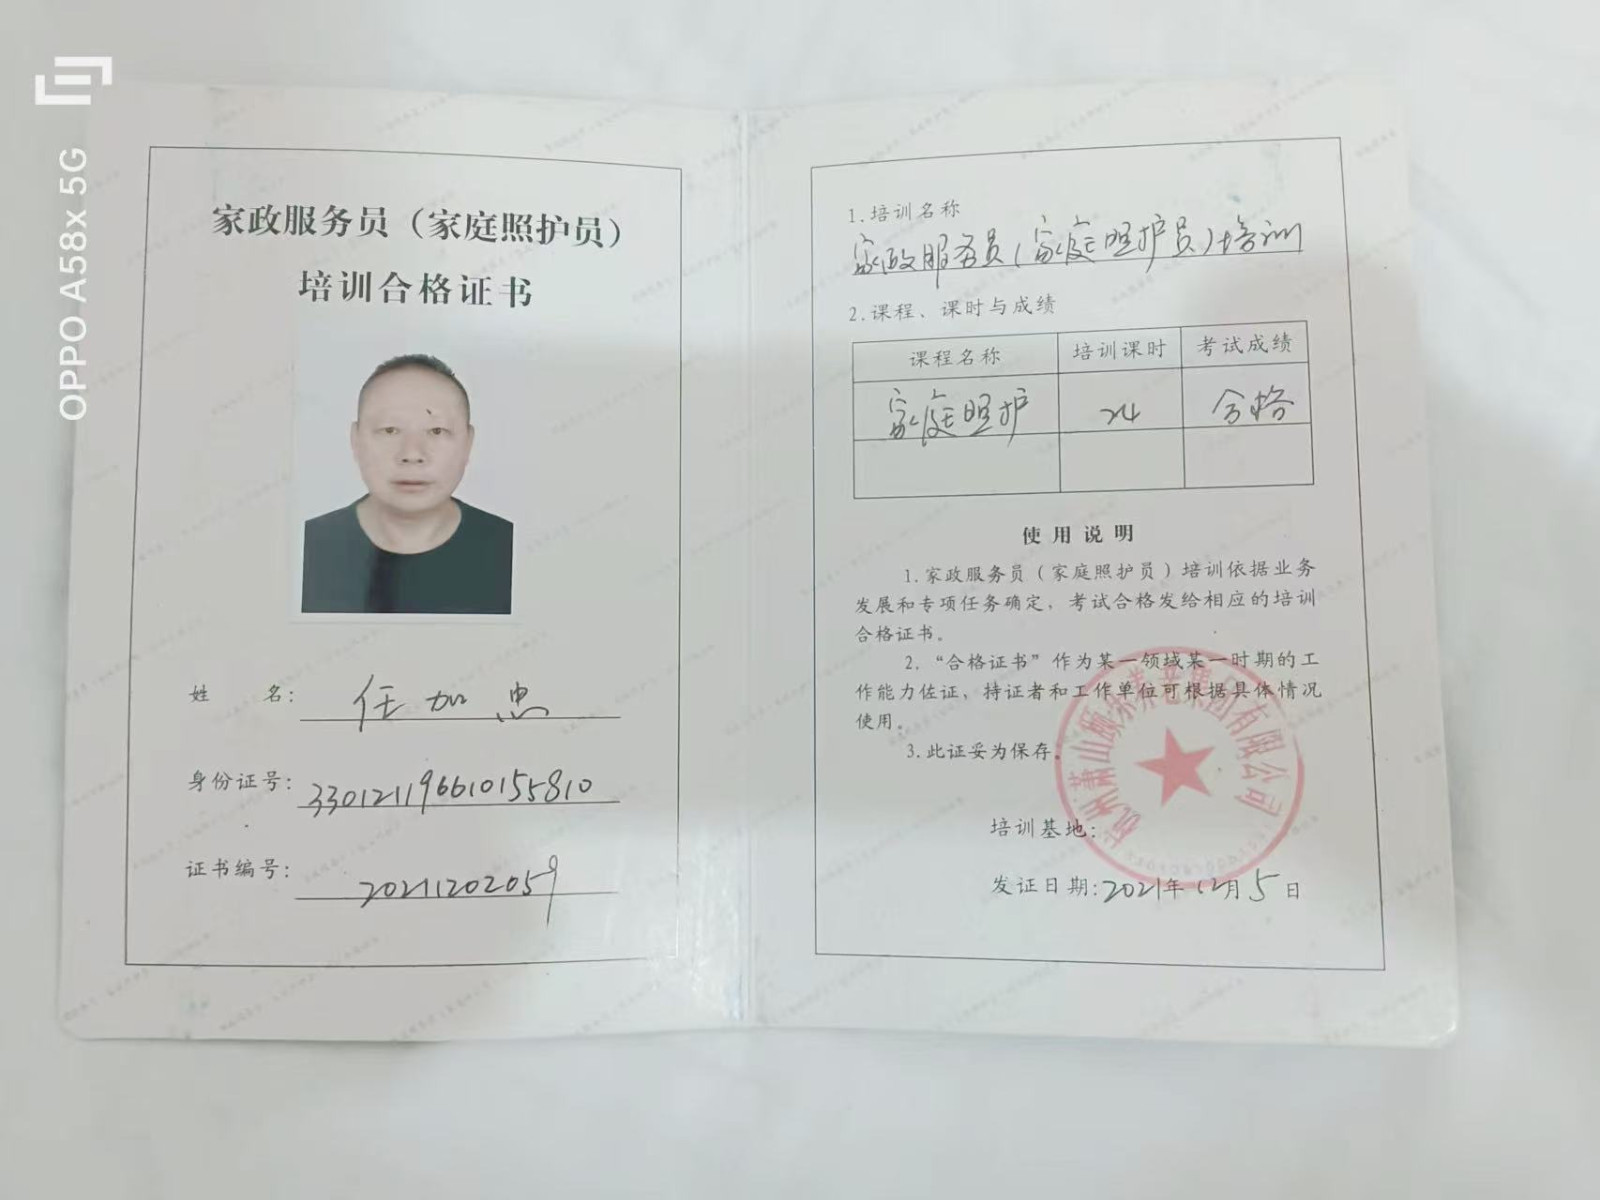 OPPO A58x 5G
家政服务员（家庭照护员）
培训合格证书
姓 名：任加忠
身份证号：330121196610155810
证书编号：20211202059
1.培训名称
家政服务员（家庭照护员）培训
2.课程、课时与成绩
课程名称 培训课时 考试成绩
家庭照护 24 合格
使用说明
1.家政服务员（家庭照护员）培训依据业务
发展和专项任务确定，考试合格发给相应的培训
合格证书。
2.“合格证书”作为某一领域某一时期的工
作能力佐证，持证者和工作单位可根据具体情况
使用。
3.此证妥为保存。
杭州萧山颐东养老集团有限公司
培训基地：
发证日期：2021年12月5日